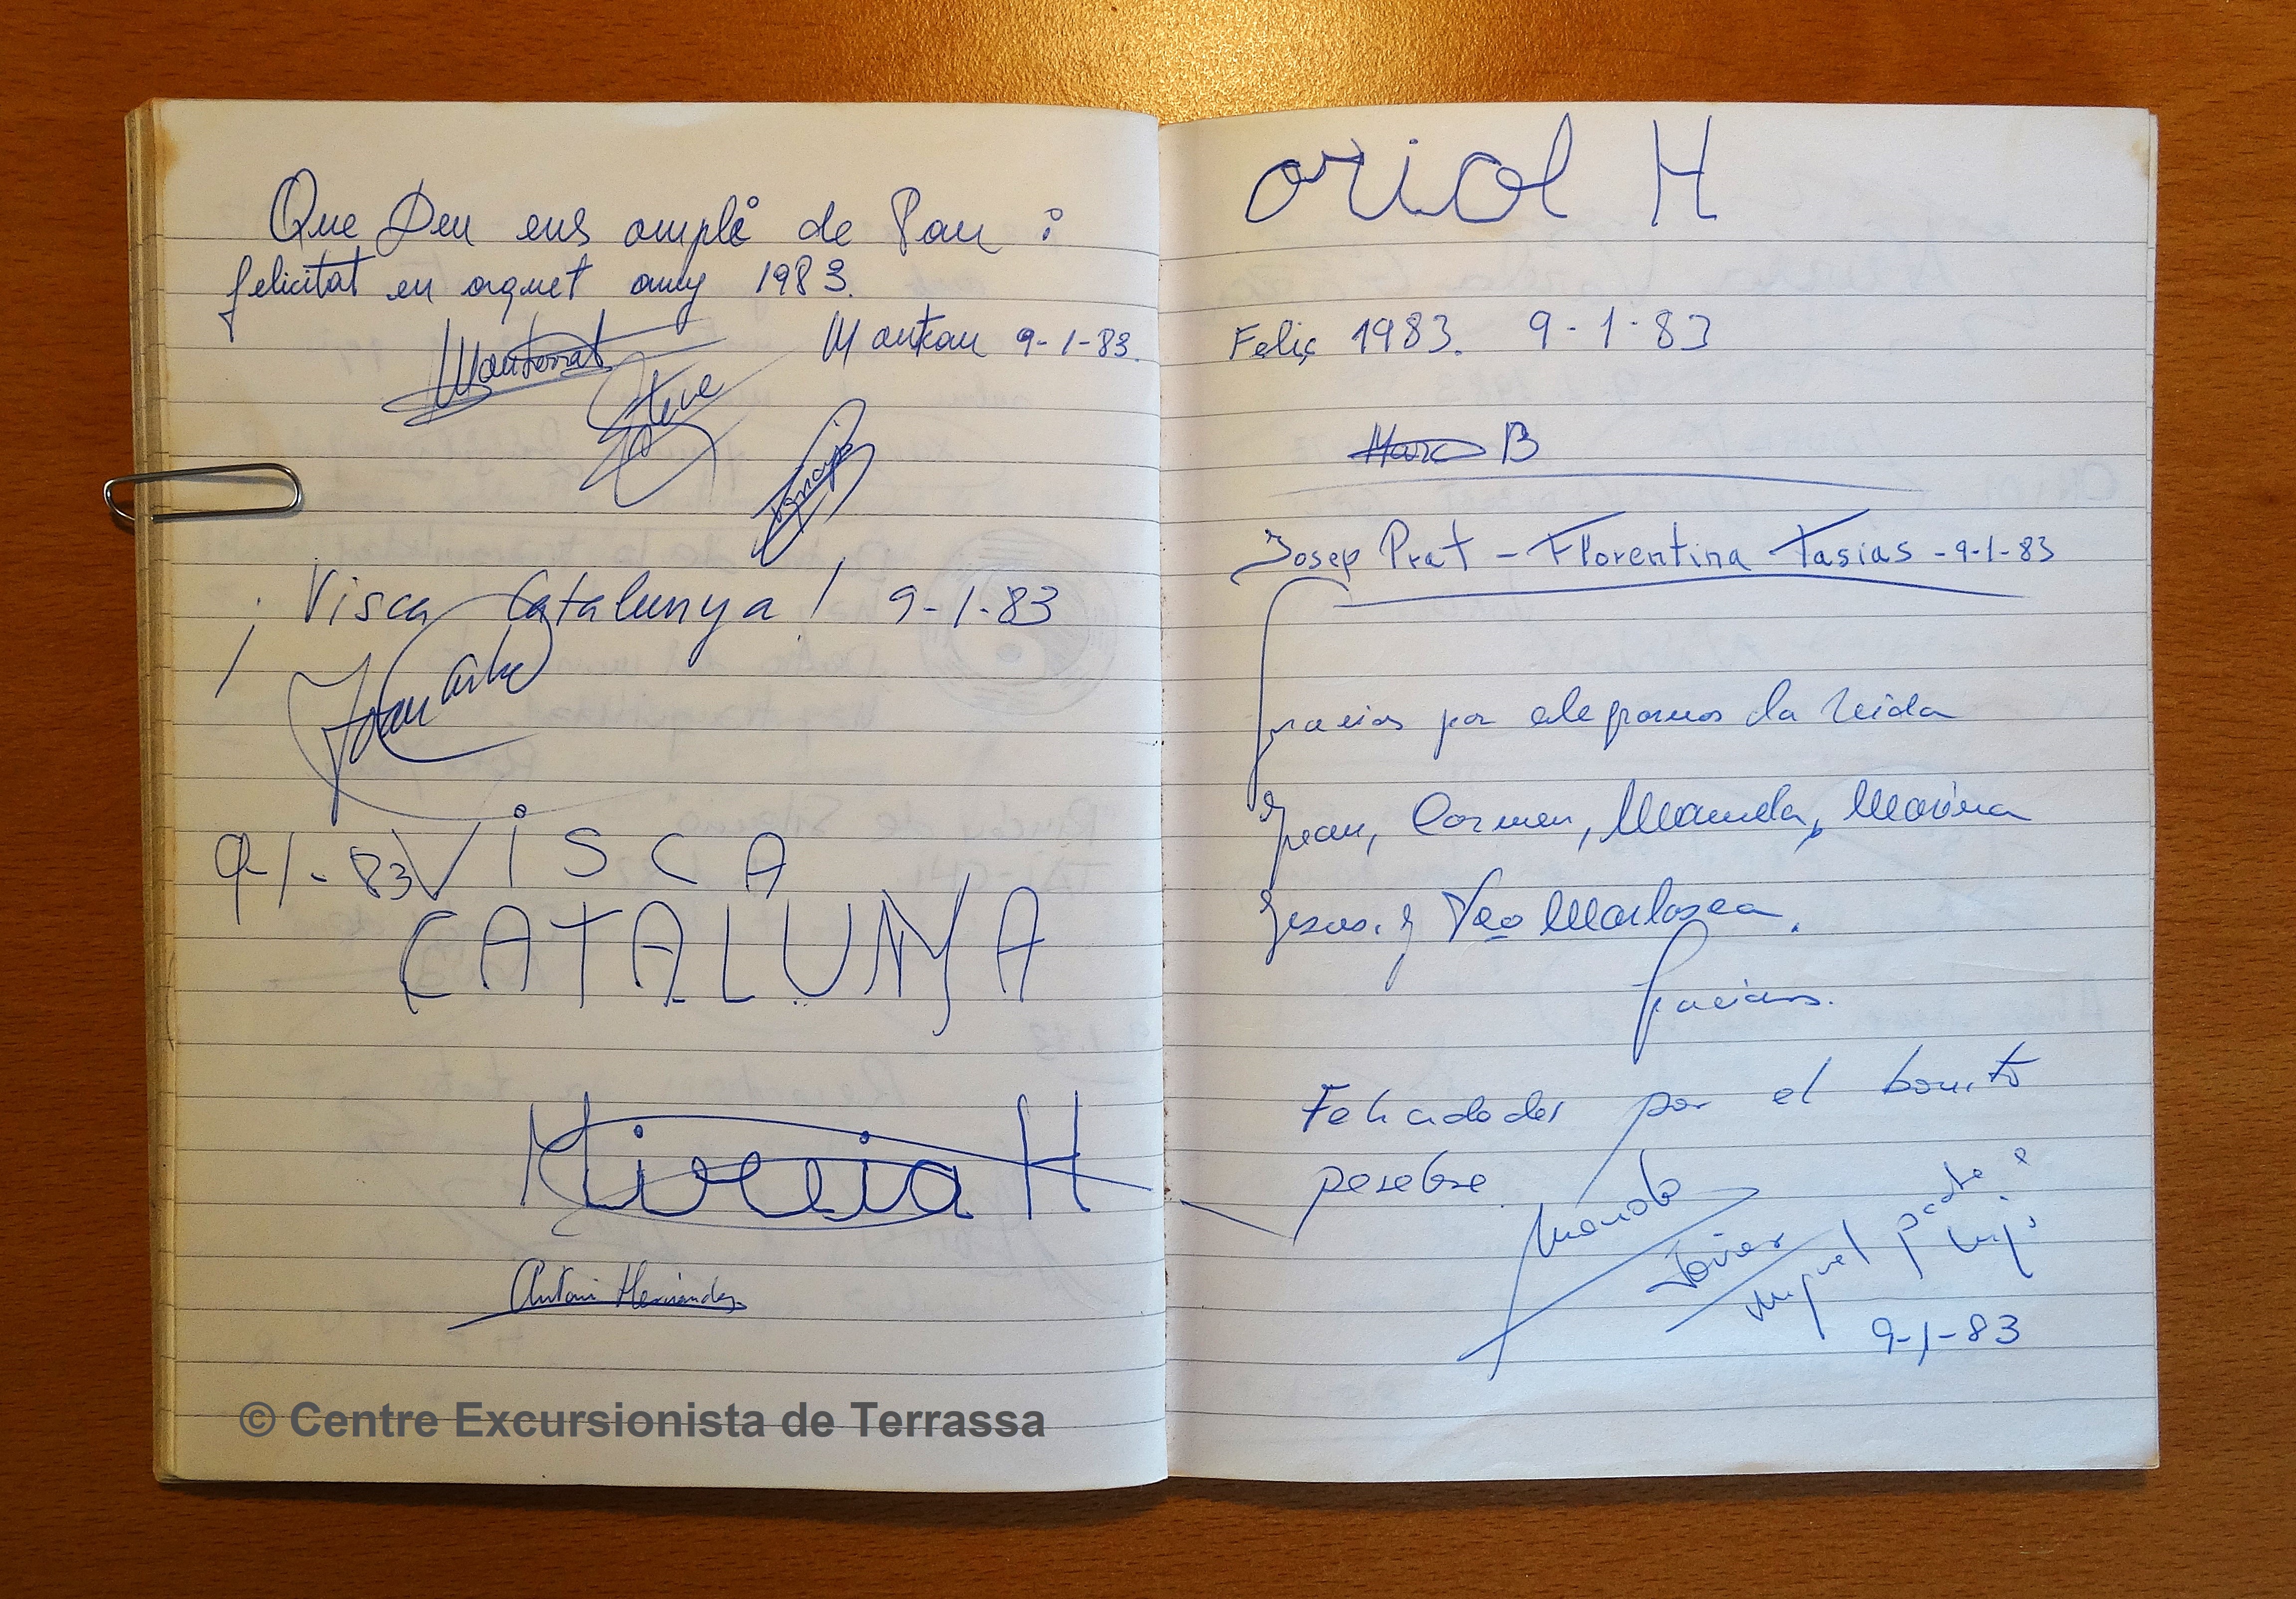 Que Deu ens omplí de Pau i
felicitat en aquet any 1983.
Montserrat
9-1-83.
Esteve
¡Visca Catalunya! 9-1-83
Joan
9-1-83 VISCA
CATALUNYA
Mireia H
Antoni Hernández
© Centre Excursionista de Terrassa
oriol H
Feliç 1983. 9-1-83
Marc B
Josep Prat - Florentina Tasias - 9-1-83
Gracias por alegrarnos la vida
Juan, Carmen, Manuela, Marina
Jesus. y
Gracias.
Felicidades por el bonito
pesebre
Manolo
Javier
Miguel padre e
hijo
9-1-83